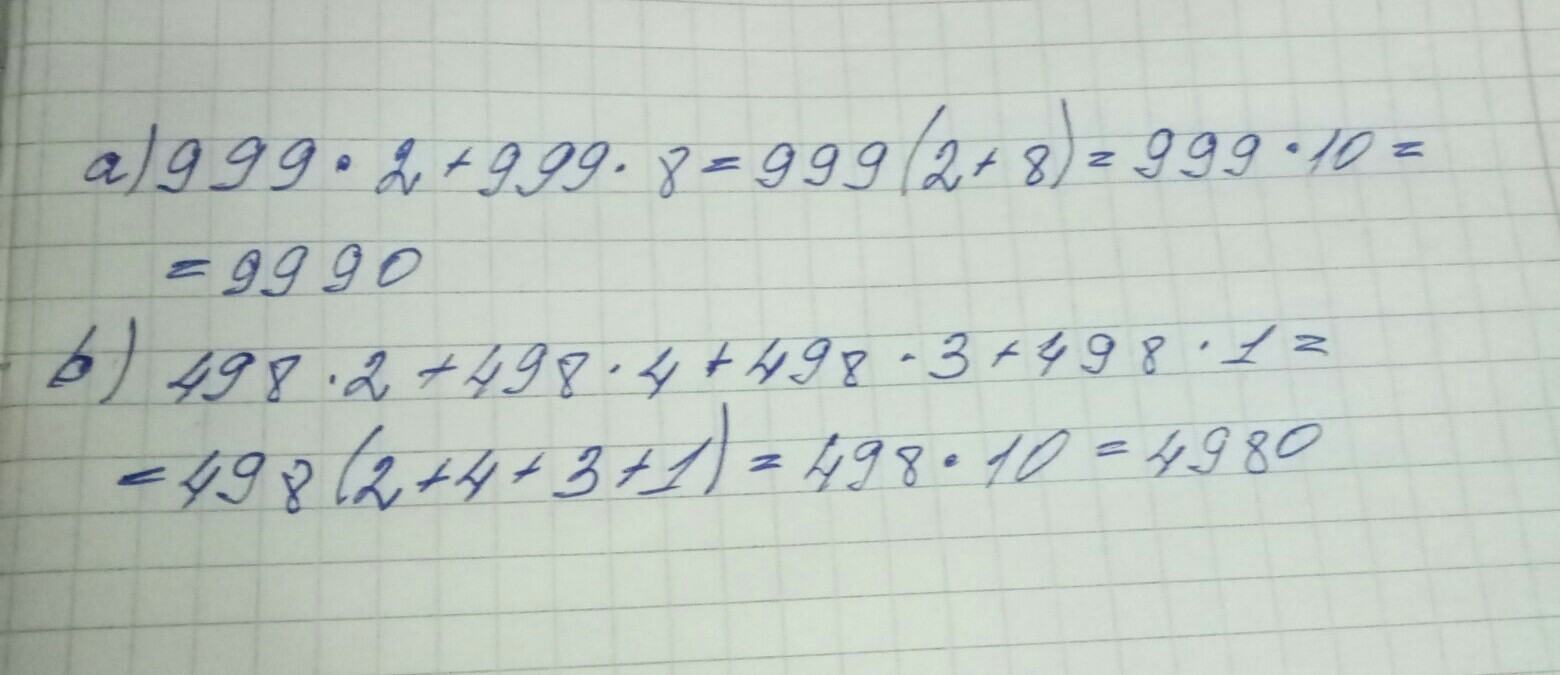 a) 999 · 2 + 999 · 8 = 999 (2 + 8) = 999 · 10 =
= 9990
b) 498 · 2 + 498 · 4 + 498 · 3 + 498 · 1 =
= 498 (2 + 4 + 3 + 1) = 498 · 10 = 4980